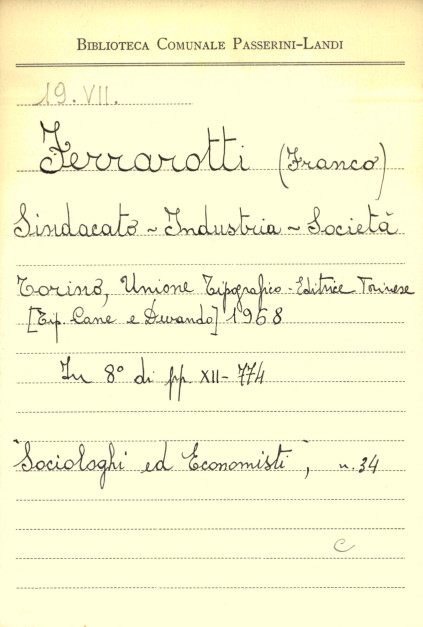 BIBLIOTECA COMUNALE PASSERINI-LANDI
19. VII.
Ferrarotti (Franco)
Sindacato - Industria - Società
Torino, Unione Tipografico-Editrice Torinese
[Tip. Cane e Durando] 1968
In 8° di pp XII-774
"Sociologhi ed Economisti", n. 34
C